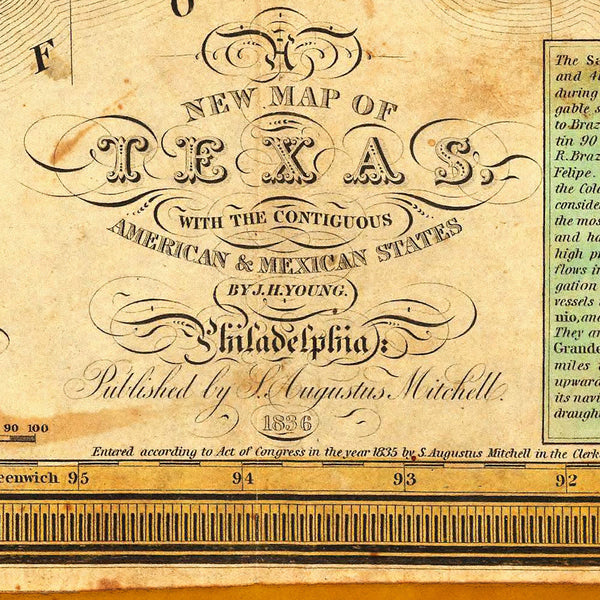 O
F
A
NEW MAP OF
TEXAS,
WITH THE CONTIGUOUS
AMERICAN & MEXICAN STATES
BY J.H.YOUNG.
Philadelphia:
Published by S. Augustus Mitchell.
1836
90 100
Entered according to Act of Congress in the year 1835 by S. Augustus Mitchell in the Clerk
eenwich 95 94 93 92
The Sa
and 4
during
gable s
to Braz
tin 90
R.Braz
Felipe.
the Colo
conside
the mos
and ha
high pr
flows in
gation
vessels
nio, and
They ar
Grande
miles
upward
its navi
draught